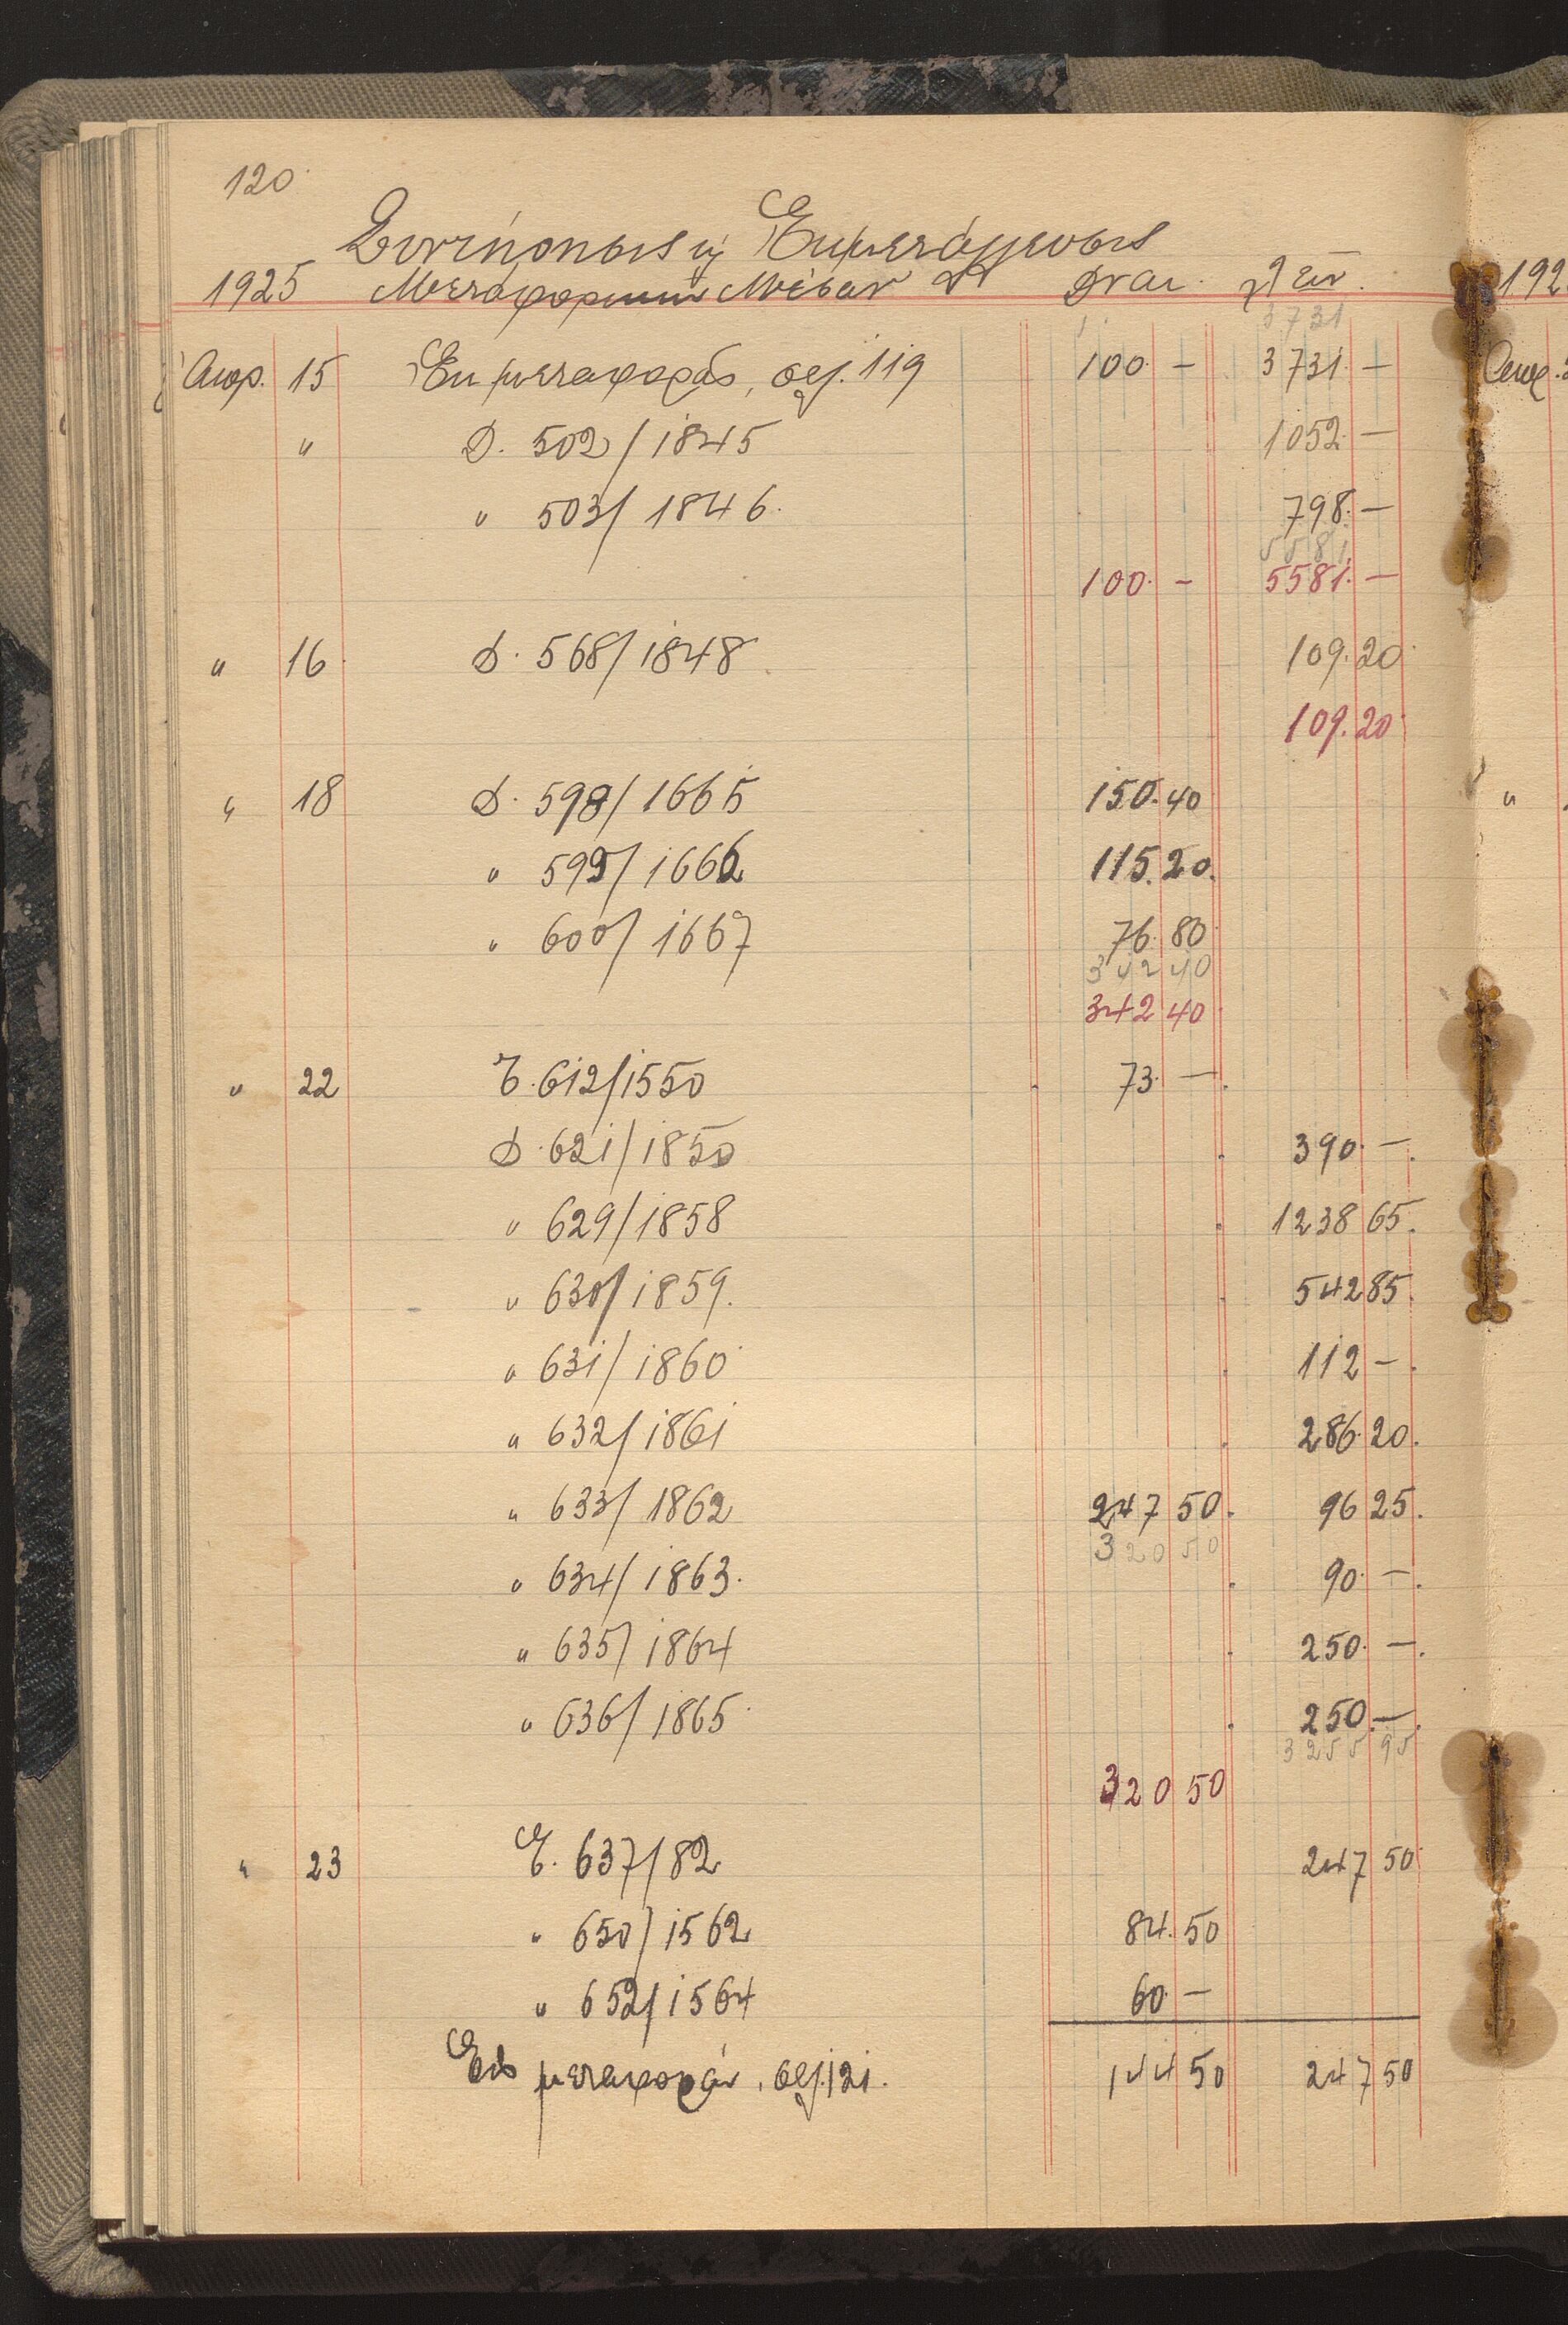 120
Συντήρησις ἢ Ἐκμετάλλευσις
1925 Μεταφορικῶν Μέσων
192
Απρ. 15 Ἐκ μεταφορᾶς, σελ. 119 100. — 3731. —
3731
" Δ. 502/1845 1052. —
" 503/1846. 798. —
5581
100. — 5581. —
" 16 Δ. 568/1848 109.20
109.20
" 18 Δ. 598/1665 150.40
" 599/1666 115.20
" 600/1667 76.80
342 40
342 40
" 22 Ε. 612/1550 73. —
Δ. 621/1850 390. —
" 629/1858 1238 65
" 630/1859. 542 85
" 631/1860 112 —
" 632/1861 286.20
" 633/1862 247 50 96 25
320 50
" 634/1863. 90. —
" 635/1864 250. —
" 636/1865 250. —
3255 95
320 50
" 23 Ε. 637/82 247 50
" 650/1562 84.50
" 652/1564 60 —
Εἰς μεταφοράν, σελ. 121. 144 50 247 50